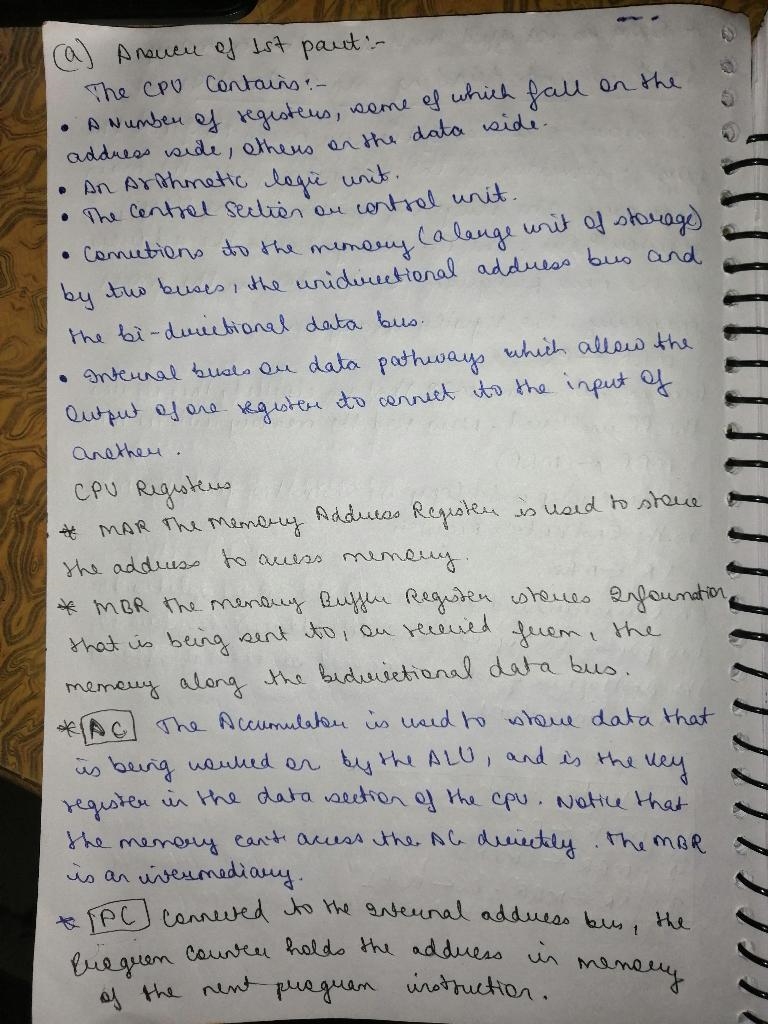 (a) Answer of 1st part :-
The CPU Contains :-
• A Number of registers, some of which fall on the
address side, others on the data side.
• An Arithmetic logic unit.
• The Control Section or control unit.
• Connections to the memory (a large unit of storage)
by two buses, the unidirectional address bus and
the bi-directional data bus.
• Internal buses or data pathways which allow the
Output of one register to connect to the input of
another.
CPU Registers
* MAR The Memory Address Register is used to store
the address to access memory.
* MBR The memory Buffer Register stores Information
that is being sent to, or received from, the
memory along the bidirectional data bus.
* AC The Accumulator is used to store data that
is being worked on by the ALU, and is the key
register in the data section of the CPU. Notice that
the memory can't access the AC directly. The MBR
is an intermediary.
* PC Connected to the internal address bus, the
Program counter holds the address in memory
of the next program instruction.